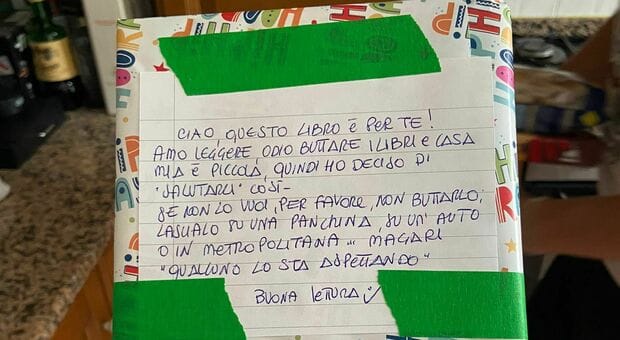 CIAO, QUESTO LIBRO È PER TE!
AMO LEGGERE, ODIO BUTTARE I LIBRI E CASA
MIA È PICCOLA, QUINDI HO DECISO DI
"SALUTARLI" COSÌ-
SE NON LO VUOI, PER FAVORE, NON BUTTARLO;
LASCIALO SU UNA PANCHINA, SU UN'AUTO
O IN METROPOLITANA... MAGARI
"QUALCUNO LO STA ASPETTANDO"
BUONA LETTURA